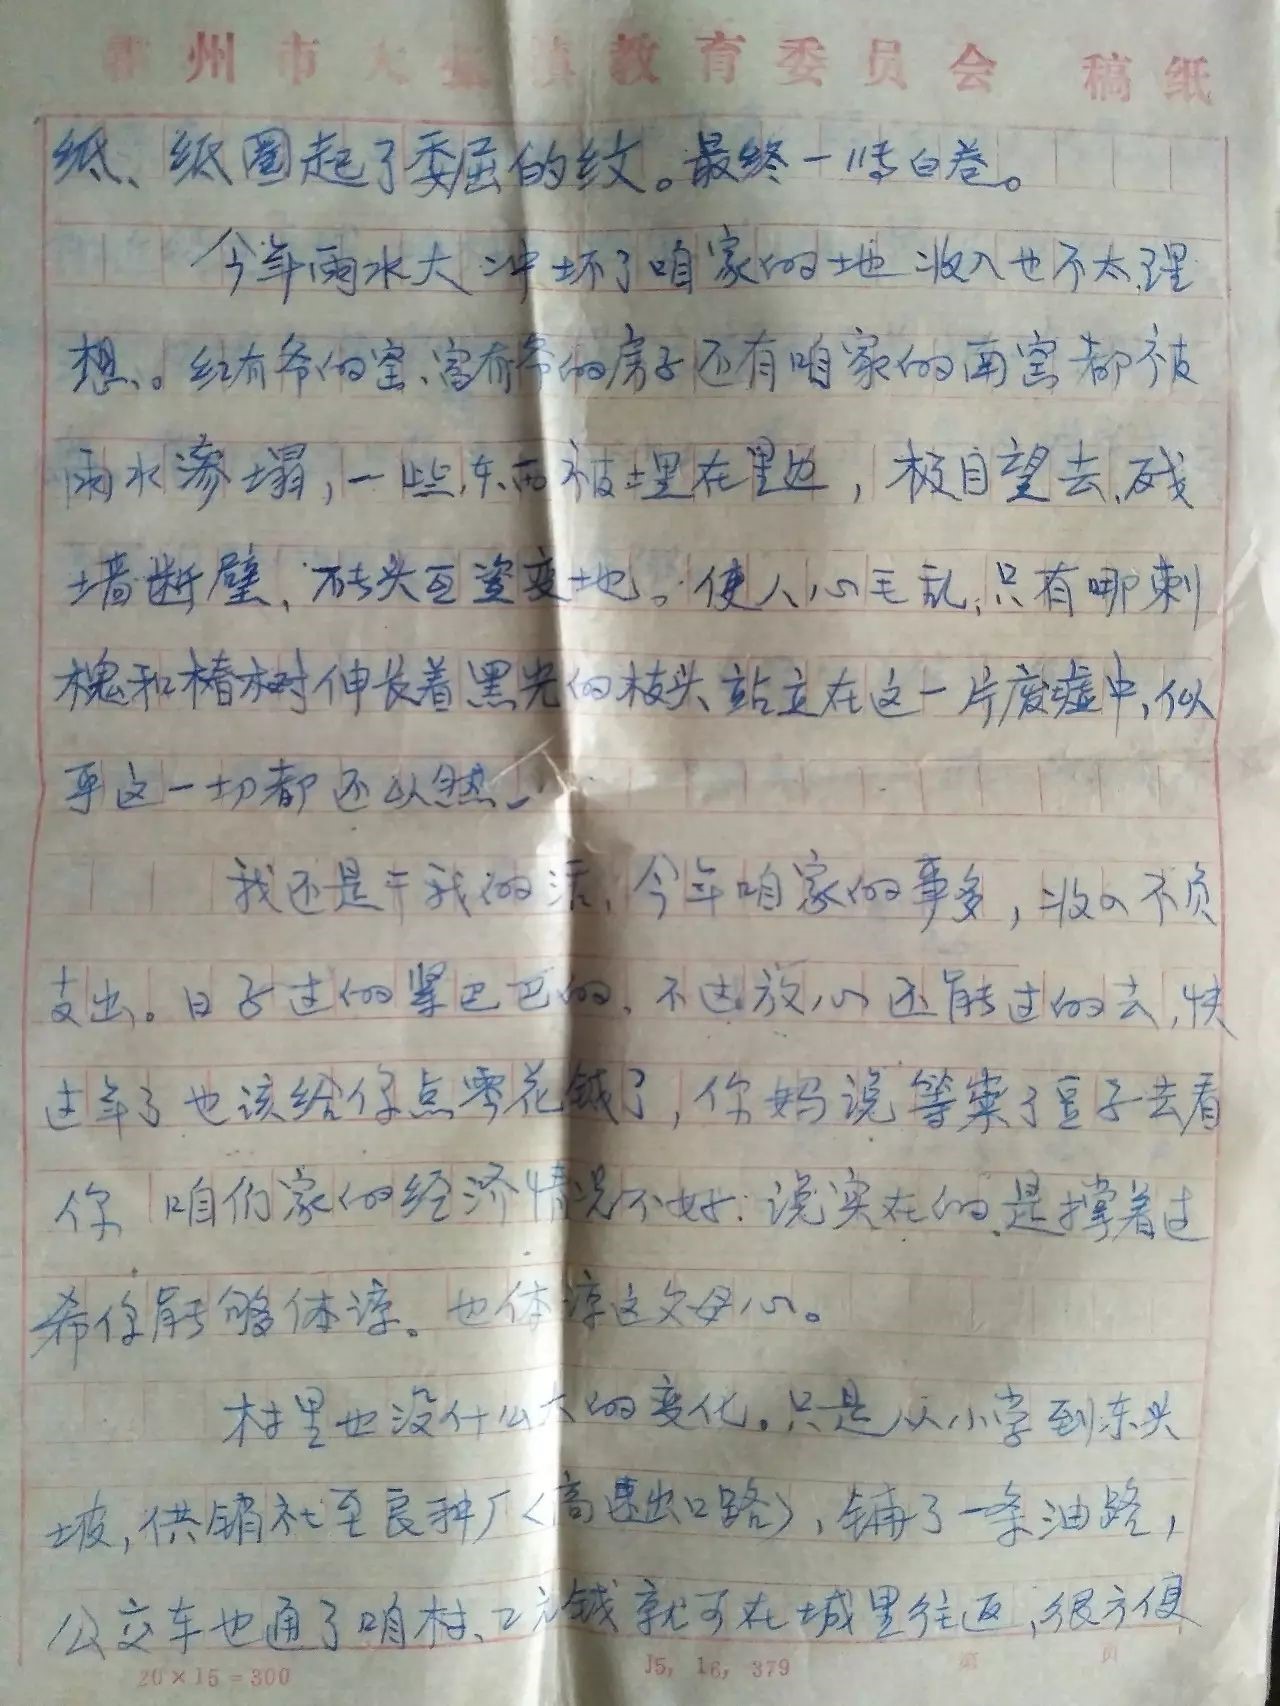 州市大 镇教育委员会 稿纸
纸、纸圈起了委屈的纹。最终一悕白卷。
今年雨水大冲坏了咱家的地 收入也不太理
想。红有爷的窑、富有爷的房子还有咱家的南窑都被
雨水渗塌，一些东西被埋在里边，极目望去、残
墙断壁、砖头瓦瓷变地。使人心毛乱，只有哪刺
槐和椿树伸长着黑光的枝头、站立在这一片废墟中，似
乎这一切都还以然。
我还是干我的活、今年咱家的事多，收入不负
支出。日子过的紧巴巴的、不过放心还能过的去，快
过年了也该给你点零花钱了，你妈说等粜了豆子去看
你 咱们家的经济情况不好：说实在的、是撑着过
希你能够体谅。也体谅这父母心。
村里也没什么大的变化。只是从小学到东头
坡，供销社至良种厂〈高速出口路〉，铺了一条油路，
公交车也通了咱村、2元钱就可在城里往返，很方便
20×15=300 15，16，379 第 页